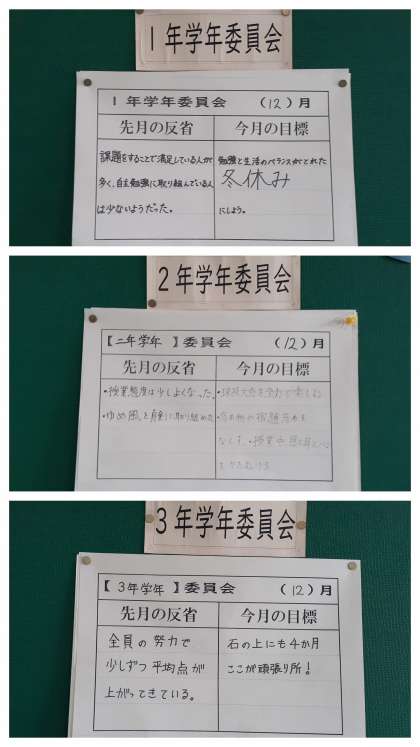 1年学年委員会
1年学年委員会　（12）月
先月の反省
今月の目標
課題をすることで満足している人が
多く、自主勉強に取り組んでいる人
は少ないようだった。
勉強と生活のバランスがとれた
冬休み
にしよう。
2年学年委員会
【二年学年】委員会　（12）月
先月の反省
今月の目標
・授業態度は少しよくなった。
・ゆめ風と真剣に取り組めた
・球技大会を全力で楽しむ
の宿題
なくす。・授業中
3年学年委員会
【3年学年】委員会　（12）月
先月の反省
今月の目標
全員の努力で
少しずつ平均点が
上がってきている。
石の上にも4か月
ここが頑張り所！